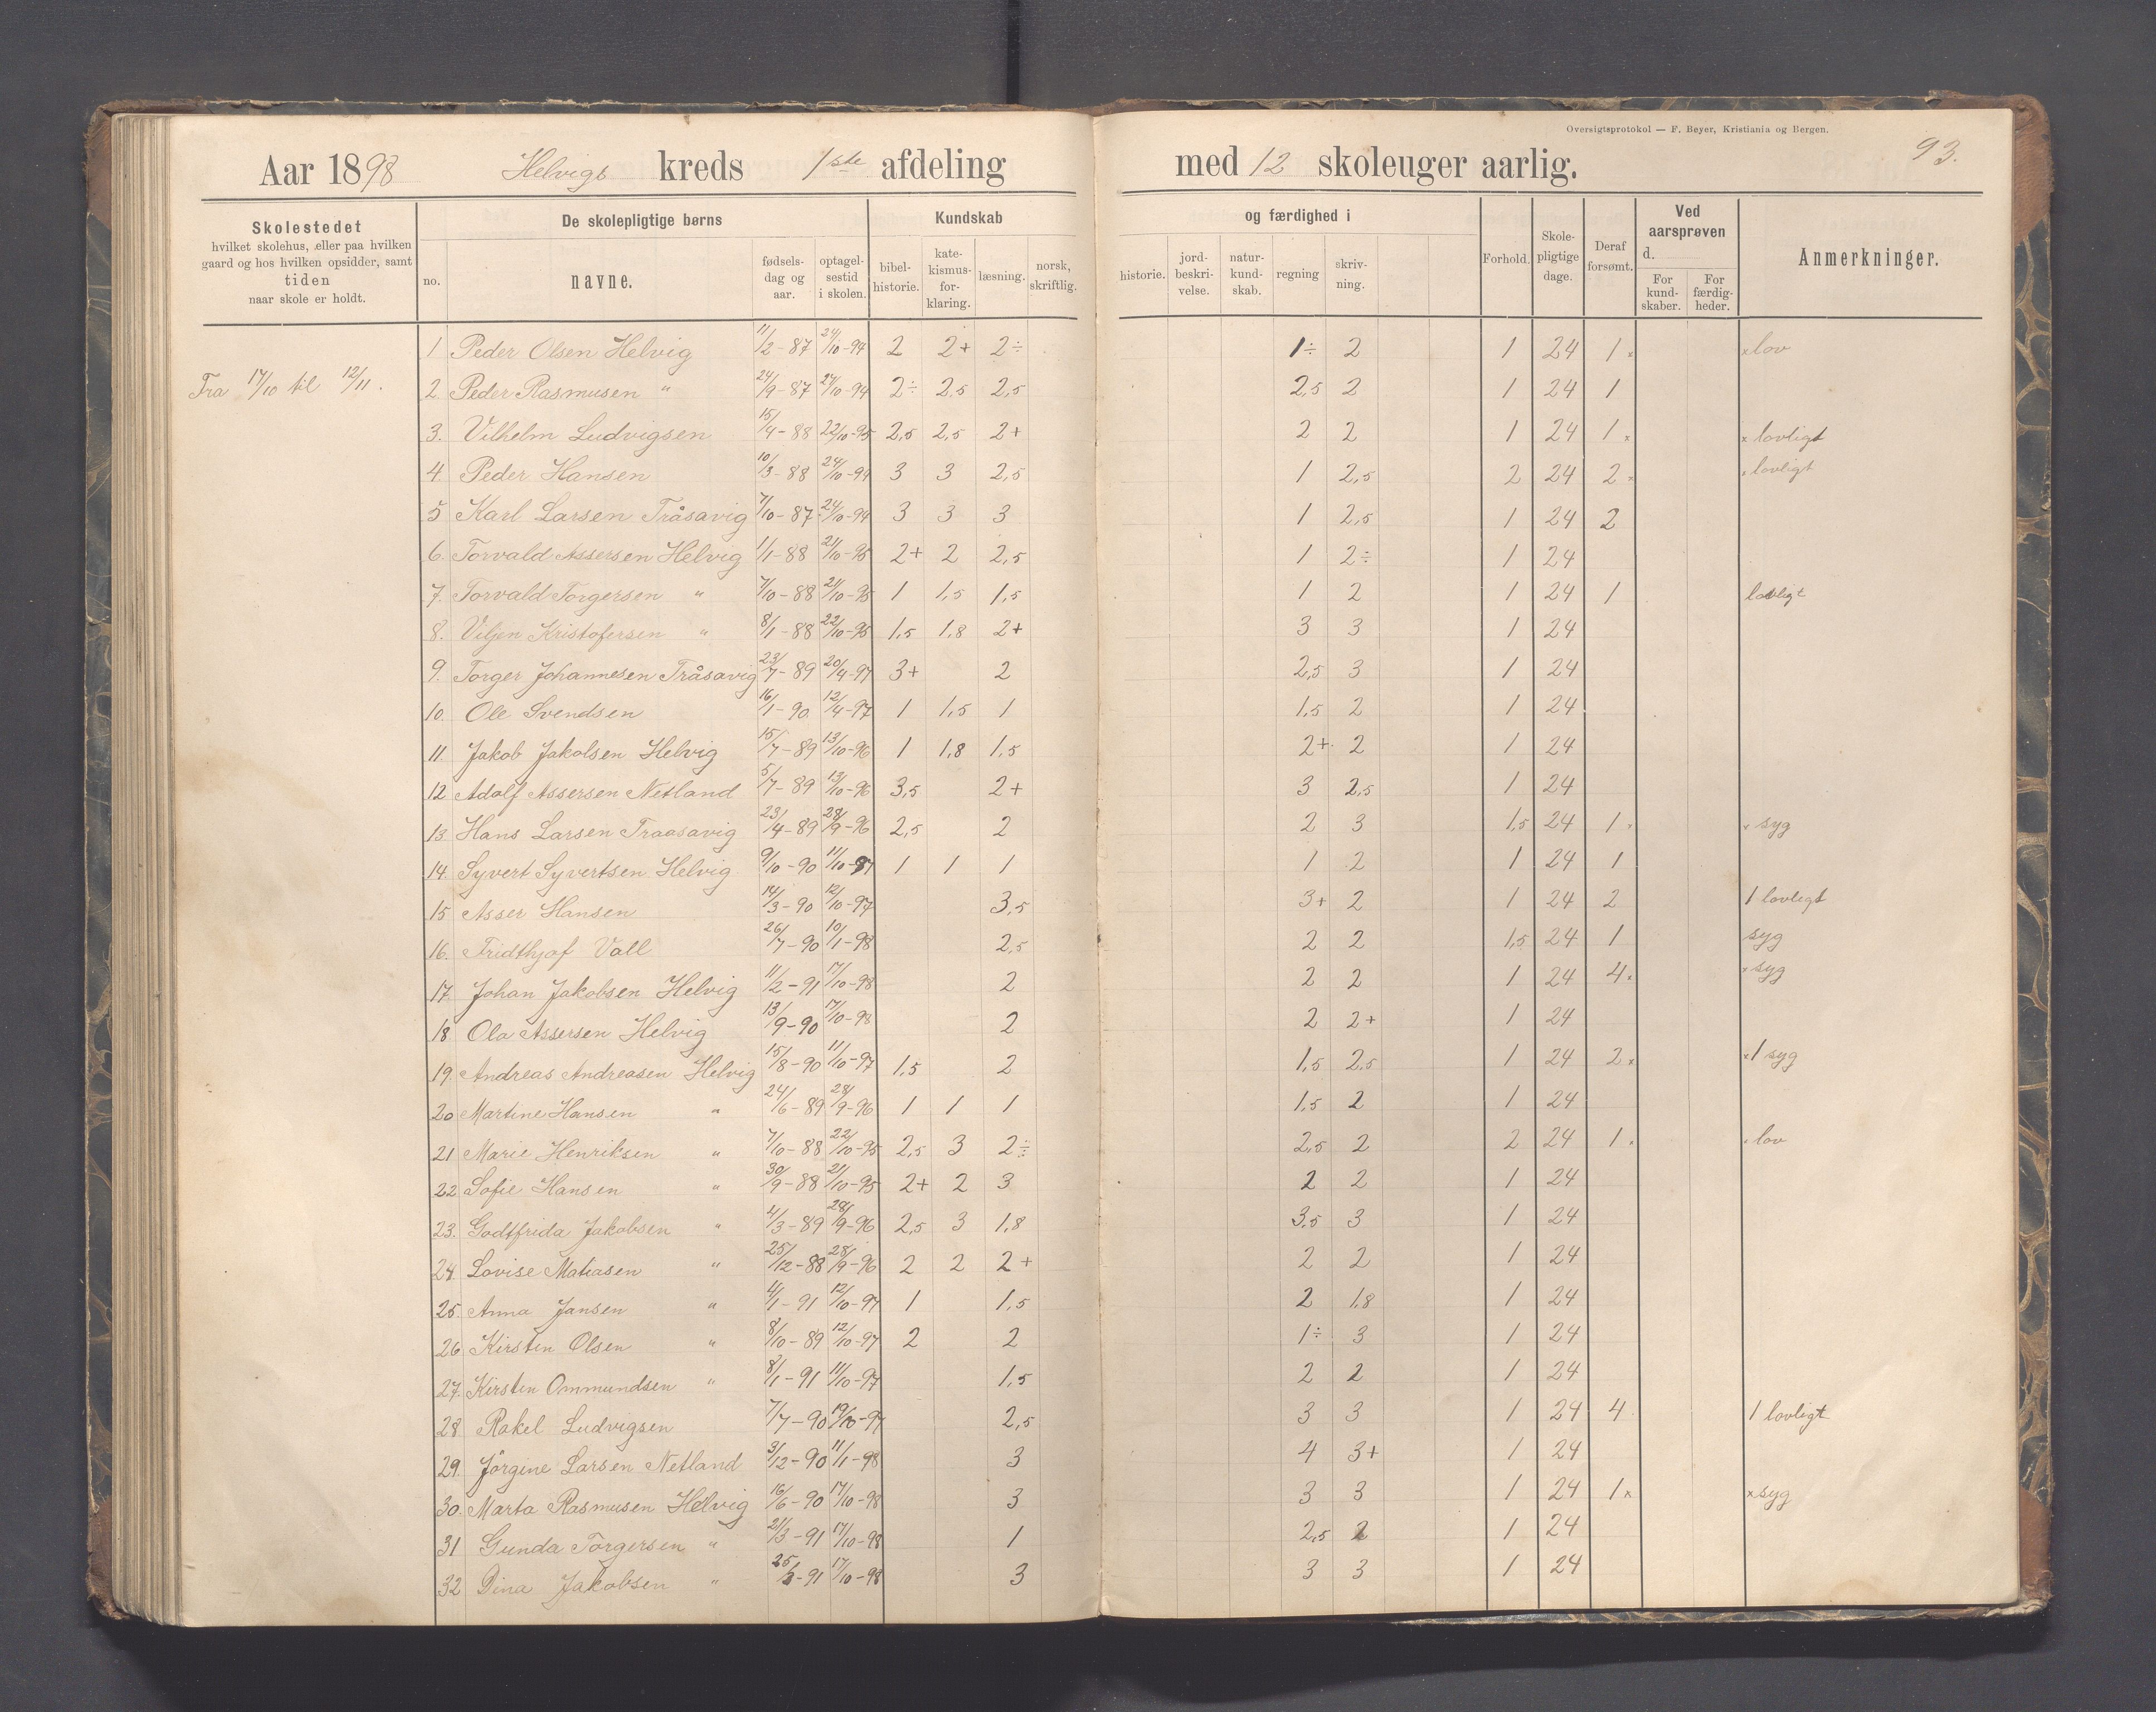 Oversigtsprotokol — F. Beyer, Kristiania og Bergen.
93.
Aar 1898 Helvigs kreds 1ste afdeling med 12 skoleuger aarlig.
Skolestedet hvilket skolehus, eller paa hvilken gaard og hos hvilken opsidder, samt tiden naar skole er holdt.
De skolepligtige børns
no. navne. fødsels-dag og aar. optagel-sestid i skolen.
Kundskab og færdighed i
bibel-historie. kate-kismus-for-klaring. læsning. norsk, skriftlig. historie. jord-beskri-velse. natur-kund-skab. regning skriv-ning.
Forhold. Skole-pligtige dage. Deraf forsømt.
Ved aarsprøven d.
For kund-skaber. For færdig-heder.
Anmerkninger.
Fra 17/10 til 12/11.
1 Peder Olsen Helvig 11/2-87 24/10-94 2 2+ 2÷ 1÷ 2 1 24 1x xlov
2. Peder Rasmusen " 24/9-87 24/10-94 2÷ 2,5 2,5 2,5 2 1 24 1
3. Vilhelm Ludvigsen 15/4-88 22/10-95 2,5 2,5 2+ 2 2 1 24 1x x lovligt
4. Peder Hansen 10/3-88 24/10-94 3 3 2,5 1 2,5 2 24 2x x lovligt
5 Karl Larsen Tråsavig 7/10-87 24/10-94 3 3 3 1 2,5 1 24 2
6. Torvald Assersen Helvig 1/1-88 21/10-95 2+ 2 2,5 1 2÷ 1 24
7. Torvald Torgersen " 7/10-88 21/10-95 1 1,5 1,5 1 2 1 24 1 lovligt
8. Viljen Kristofersen " 8/1-88 22/10-95 1,5 1,8 2+ 3 3 1 24
9. Torger Johannesen Tråsavig 23/7-89 20/4-97 3+ 2 2,5 3 1 24
10. Ole Svendsen 16/1-90 12/4-97 1 1,5 1 1,5 2 1 24
11. Jakob Jakobsen Helvig 15/7-89 13/10-96 1 1,8 1,5 2+ 2 1 24
12 Adolf Assersen Netland 5/7-89 13/10-96 3,5 2+ 3 2,5 1 24
13. Hans Larsen Traasavig 23/4-89 28/9-96 2,5 2 2 3 1,5 24 1x x syg
14. Syvert Syvertsen Helvig 9/10-90 11/10-97 1 1 1 1 2 1 24 1
15 Asser Hansen 14/3-90 12/10-97 3,5 3+ 2 1 24 2 1 lovligt
16. Fridthjof Vall 26/7-90 10/1-98 2,5 2 2 1,5 24 1 syg
17. Johan Jakobsen Helvig 11/2-91 17/10-98 2 2 2 1 24 4x x syg
18 Ola Assersen Helvig 13/9-90 17/10-98 2 2 2+ 1 24
19. Andreas Andreasen Helvig 15/8-90 11/10-97 1,5 2 1,5 2,5 1 24 2x x1 syg
20 Martine Hansen " 24/6-89 28/9-96 1 1 1 1,5 2 1 24
21 Marie Henriksen " 7/10-88 22/10-95 2,5 3 2÷ 2,5 2 2 24 1x x lov
22 Sofie Hansen " 30/9-88 21/10-95 2+ 2 3 2 2 1 24
23. Godtfrida Jakobsen " 4/3-89 28/9-96 2,5 3 1,8 3,5 3 1 24
24 Lovise Matiasen " 25/12-88 28/9-96 2 2 2+ 2 2 1 24
25. Anna Jansen " 4/1-91 12/10-97 1 1,5 2 1,8 1 24
26 Kirsten Olsen " 8/10-89 12/10-97 2 2 1÷ 3 1 24
27. Kirsten Ommundsen " 8/1-91 11/10-97 1,5 2 2 1 24
28 Rakel Ludvigsen 7/7-90 19/10-97 2,5 3 3 1 24 4 1 lovligt
29. Jörgine Larsen Netland 3/12-90 11/1-98 3 4 3+ 1 24
30. Marta Rasmusen Helvig 16/6-90 17/10-98 3 3 3 1 24 1x x syg
31 Gunda Torgersen " 21/3-91 17/10-98 1 2,5 2 1 24
32 Dina Jakobsen " 17/10-98 3 3 3 1 24